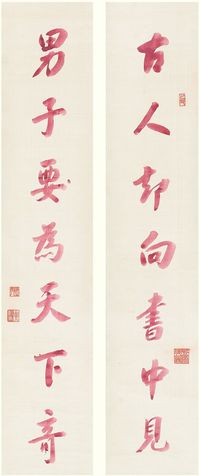 古人却向書中見
男子要為天下奇